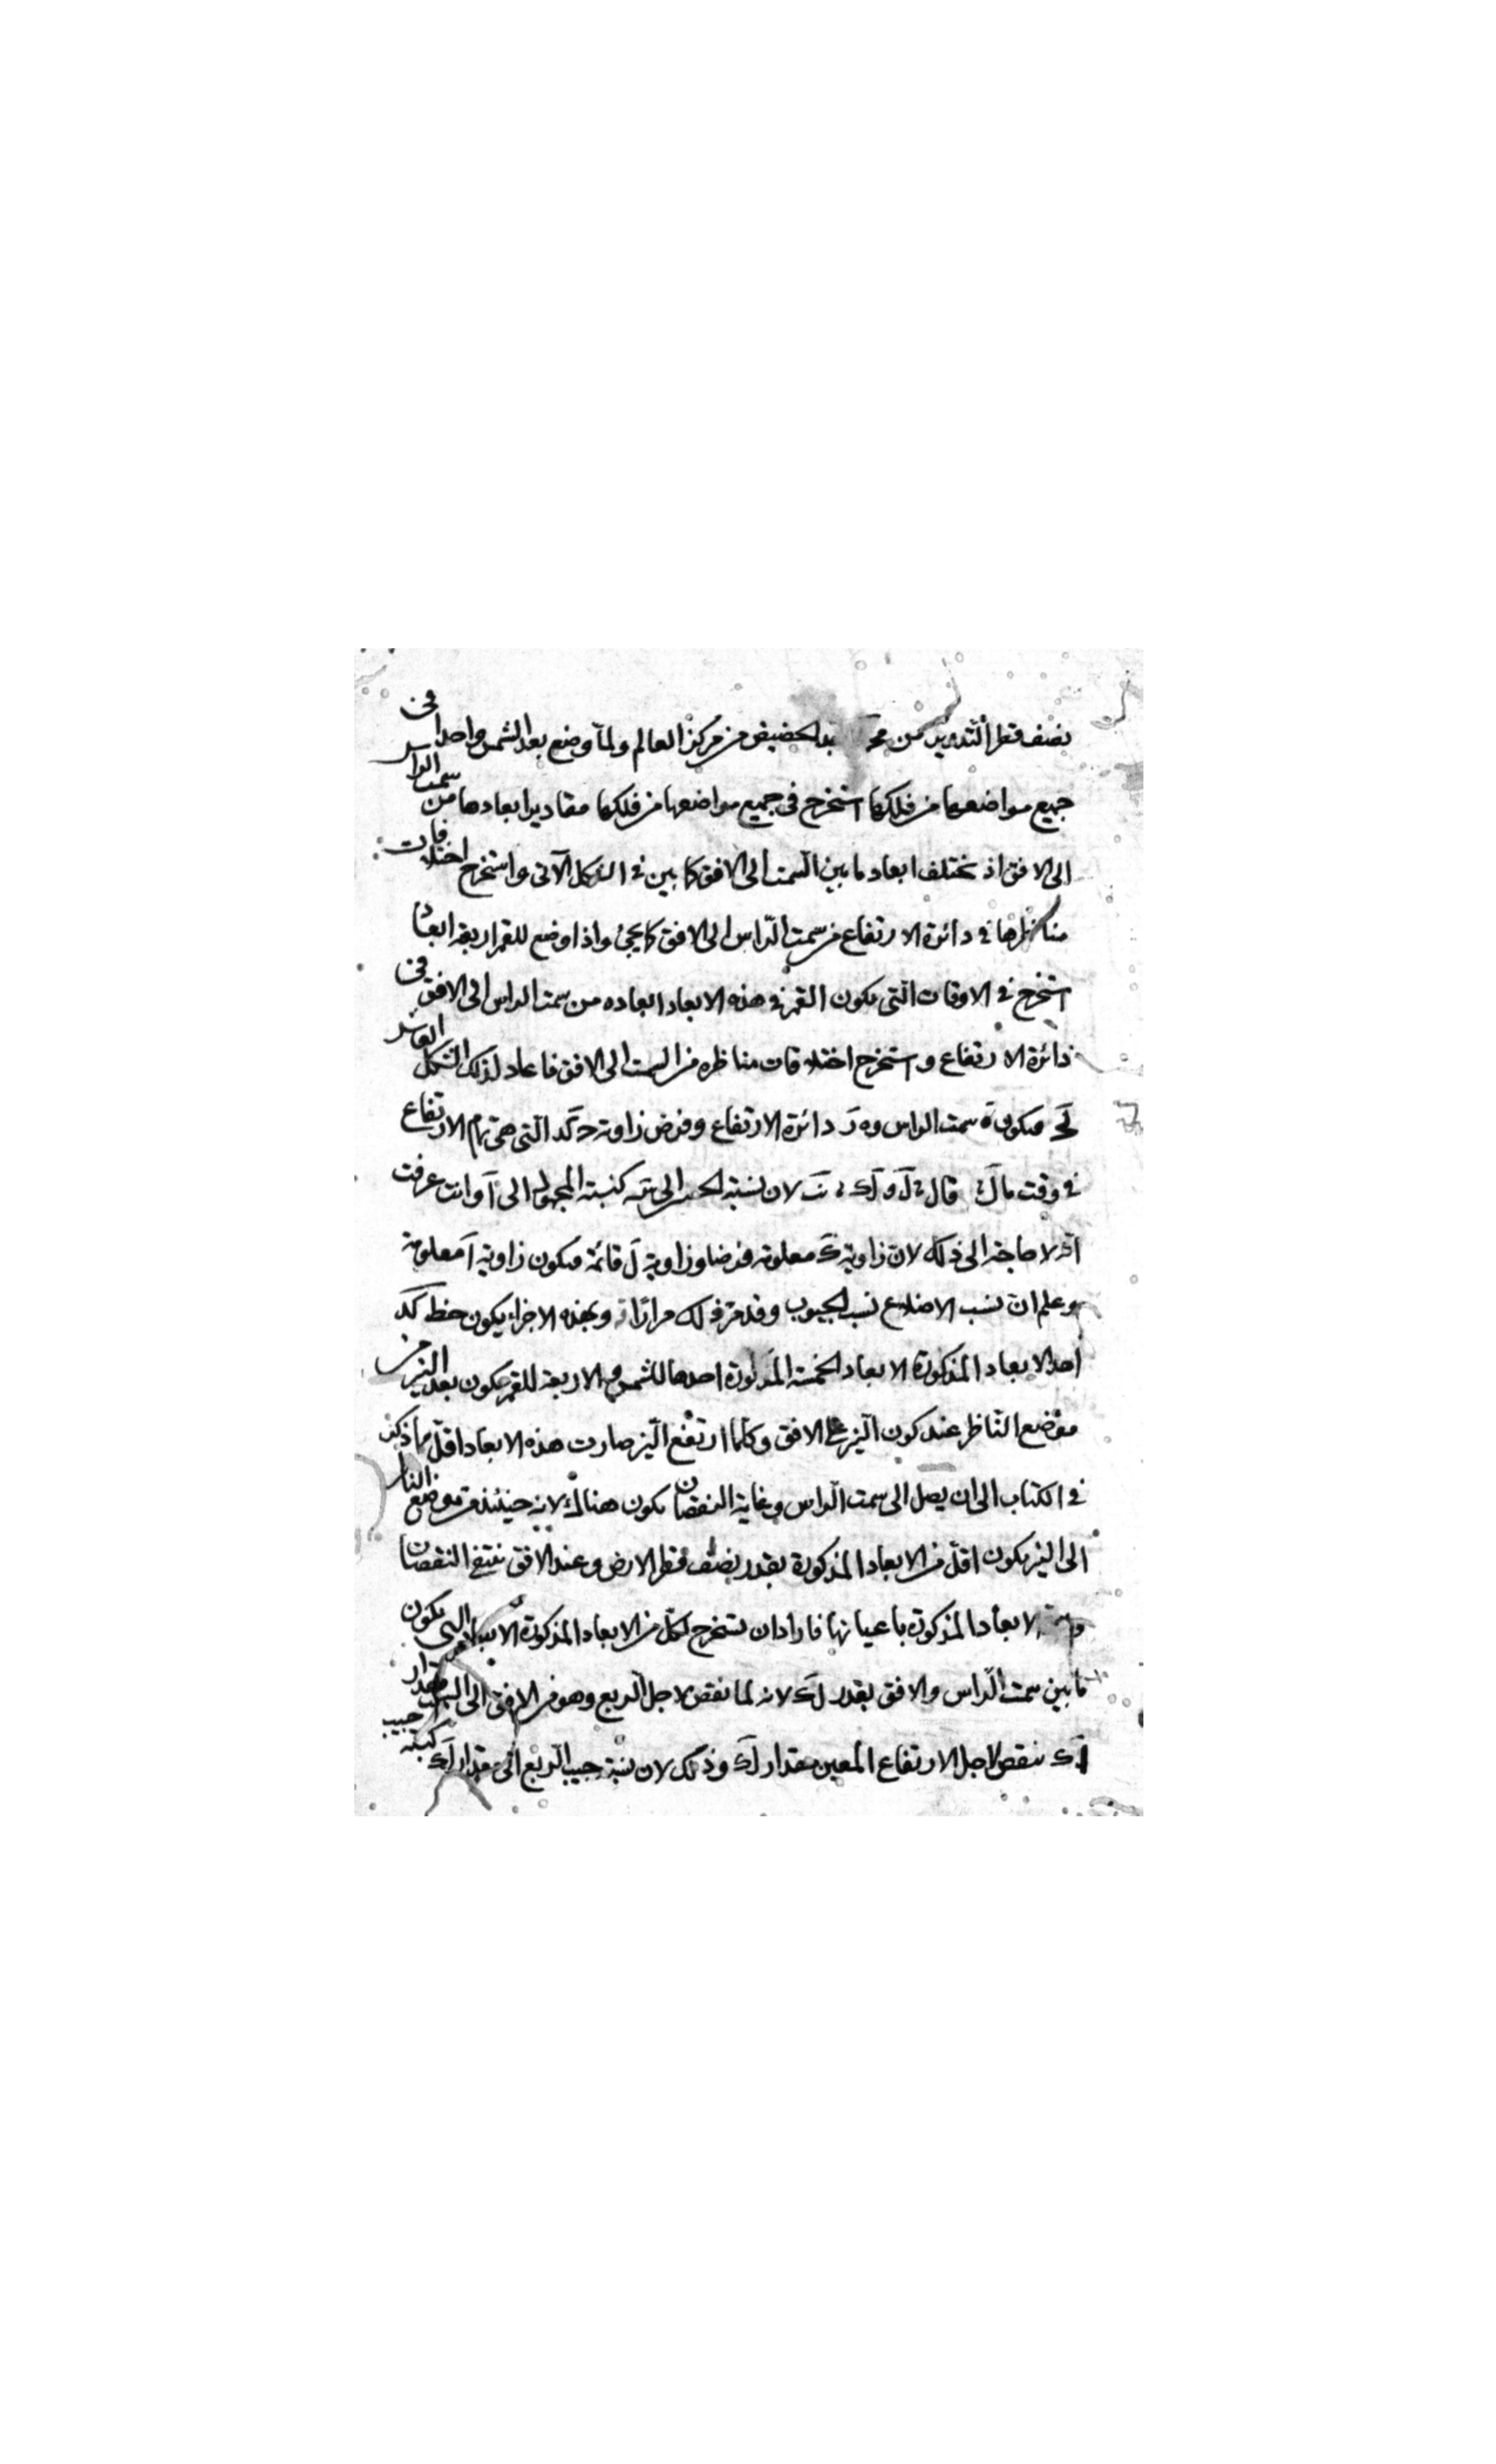 نصف قطر التدوير من بعد الحضيض من مركز العالم ولما وضع بعد الشمس واحدا في
جميع مواضعها من فلكها استخرج في جميع مواضعها من فلكها مقادير ابعادها من سمت الراس
الى الافق اذ تختلف ابعاد ما بين السمت الى الافق كما بين في الشكل الآتى واستخرج اختلافات
مناظرها في دائرة الارتفاع من سمت الراس الى الافق كما يجئ واذا وضع للقمر اربعة ابعاد
استخرج في الاوقات التى يكون القمر في هذه الابعاد ابعاده من سمت الراس الى الافق في
دائرة الارتفاع واستخرج اختلافات مناظره من السمت الى الافق فاعاد لذلك الشكل العاشر
فيكون ه سمت الراس و ه ر دائرة الارتفاع وفرض زاوية ح ك د التى هى تمام الارتفاع
في وقت ما قال لان نسبة الى كنسبة المجهول الى آ وانت عرفت
انه لا حاجة الى ذلك لان زاوية ك معلومة فرضا وزاوية ل قائمة فيكون زاوية آ معلومة
وعلم ان نسب الاضلاع نسب الجيوب وقد مر ذلك مرارا وبهذه الاجزاء يكون خط ك د
احد الابعاد المذكورة الابعاد الخمسة المذكورة احدها للشمس والاربعة للقمر فيكون بعد النير من
موضع الناظر عند كون النير على الافق وكلما ارتفع النير صارت هذه الابعاد اقل مما ذكر
في الكتاب الى ان يصل الى سمت الراس وغاية النقصان يكون هناك لانه حينئذ من موضع الناظر
الى النير يكون اقل من الابعاد المذكورة بقدر نصف قطر الارض وعند الافق ينتفى النقصان
الابعاد المذكورة باعيانها فاراد ان يستخرج لكل من الابعاد المذكورة الابعاد التى يكون
ما بين سمت الراس والافق بقدر ل ك لانه لما نقص لاجل الربع وهو من الافق الى السمت مقدار
آ ك ننقص لاجل الارتفاع المعين مقدار ل ك وذلك لان نسبة جيب الربع الى مقدار آ ك كنسبة جيب